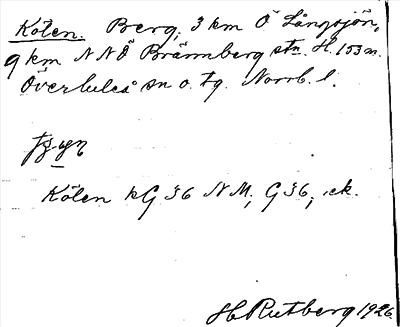 Köten. Berg, 3 km Ö Långsjön,
9 km NNÖ Brännberg stn. H. 153 m.
Överluleå sn o. tg. Norrb. l.
Köten kG 36 NM, G 36, ek.
H Rutberg 1926